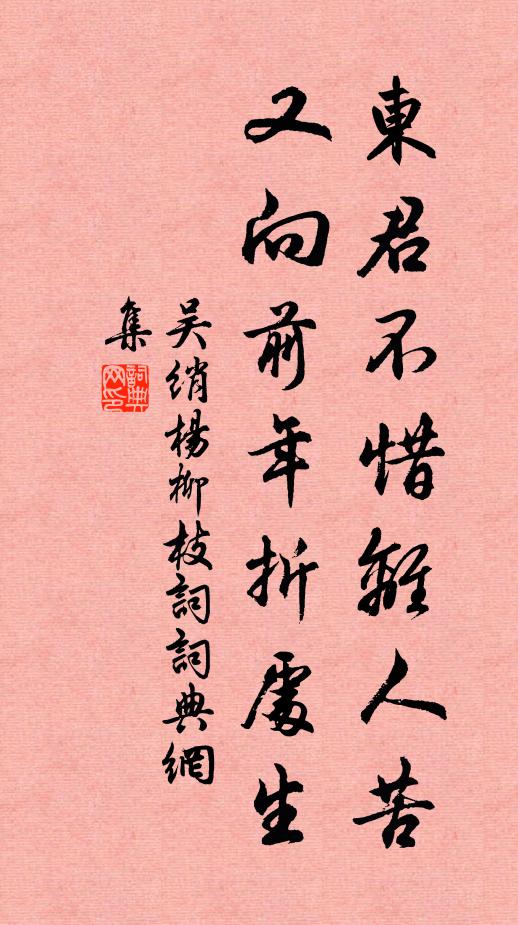 東君不惜離人苦
又向前年折處生
吳綃楊柳枝詞詞典網
集
詞典
网印